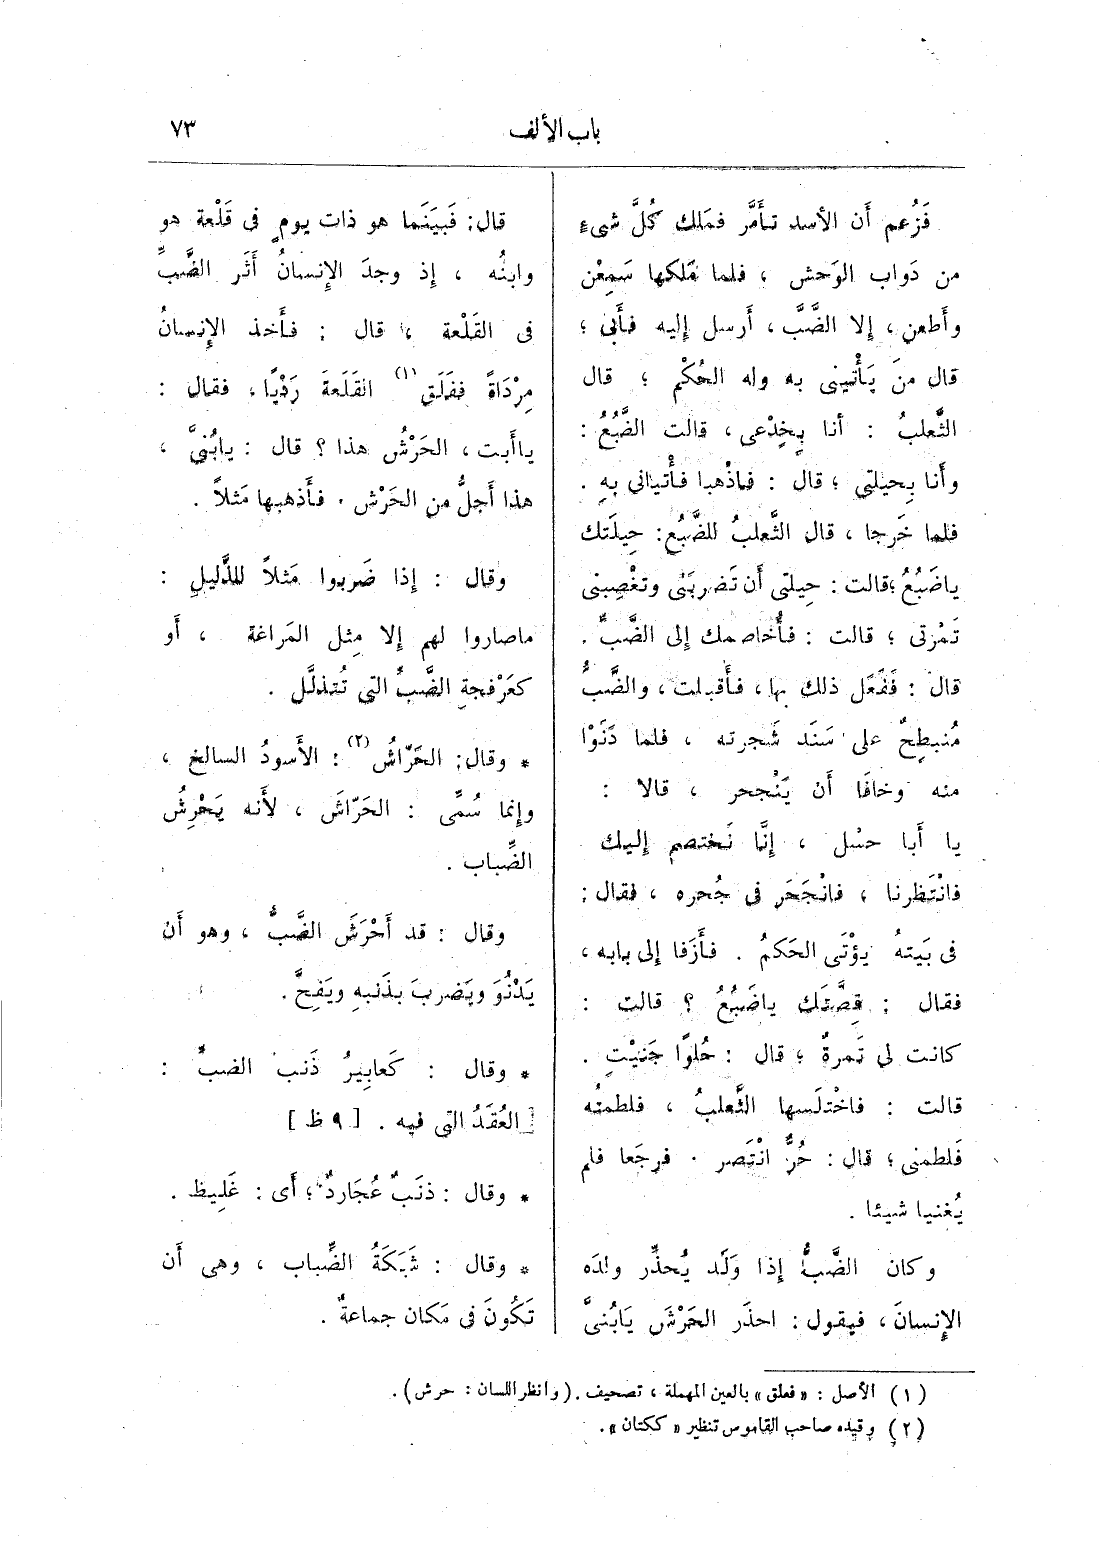 باب الألف
٧٣
فَزُعم أَن الأسد تأَمَّر فملك كُلَّ شىء
من دَواب الوَحش ، فلما مَلكها سَمِعْن
وأَطعن ، إلا الضَّبَّ ، أَرسل إليه فأَبى ؛
قال مَن يَأْتينى به وله الحُكْم ؛ قال
الثَّعلبُ : أنا بِخِدْعى ، قالت الضَّبُعُ :
وأَنا بِحيلتي ؛ قال : فاذْهبا فأْتيانى بهِ .
فلما خَرجا ، قال الثَّعلبُ للضَّبُع : حِيلَتك
ياضَبُعُ ؛ قالت : حِيلتى أَن تَضربَنى وتغْصِبنى
تَمْرتى ؛ قالت : فأُخاصمك إلى الضَّبِّ .
قال : فَفَعل ذلك بها ، فأَقبلت ، والضَّبُّ
مُنبطِحٌ على سَنَد شَجرته ، فلما دَنَوْا
منه وخافَا أَن يَنْجحر ، قالا :
يا أَبا حسْل ، إنَّا نَختصم إليك
فانْتَظرنا ، فانْجَحَر فى جُحره ، فقال :
فى بَيته يُؤْتَى الحَكمُ . فأَزَفا إلى بابه ،
فقال : قِصَّتَك ياضَبُعُ ؟ قالت :
كانت لى تَمرةٌ ؛ قال : حُلوًا جَنيْتِ .
قالت : فاخْتلَسها الثَّعلبُ ، فلطمتُه
فَلطمنى ؛ قال : حُرٌّ انْتَصر . فرجَعا فلم
يُغنيا شيئا .
وكان الضَّبُّ إذا وَلَد يُحذِّر ولدَه
الإنسانَ ، فيقول : احذَر الحَرْشَ يَابُنىَّ
قال : فَبيَنَما هو ذات يوم فى قَلْعة هو
وابنُه ، إذ وجدَ الإنسانُ أَثَر الضَّبِّ
فى القَلْعة ، قال : فأَخذ الإنسانُ
مِرْدَاةً ففَلَق (١) القَلَعةَ رَدْيًا ، فقال :
ياأَبت ، الحَرْشُ هذا ؟ قال : يابُنىَّ ،
هذا أَجلُّ من الحَرْش . فأَذهبها مَثلاً .
وقال : إذا ضَربوا مَثلاً للذَّليلِ :
ماصاروا لهم إلا مِثل المَراغة ، أَو
كعَرْفجةِ الضَّبِّ التي تُتذلَّل .
* وقال : الحَرّاشُ (٢) : الأَسودُ السالخ ،
وإنما سُمِّى : الحَرّاشَ ، لأَنه يَحْرِشُ
الضِّباب .
وقال : قد أَحْرَشَ الضَّبُّ ، وهو أَن
يَدْنُوَ ويَضربَ بذَنبهِ ويَفِحَّ .
* وقال : كَعابِيرُ ذَنب الضبِّ :
العُقَدُ التى فيه . [ ٩ ظ ]
* وقال : ذنَبٌ عُجَاردٌ ؛ أَى : غَلِيظ .
* وقال : شَبَكَةُ الضِّباب ، وهى أَن
تَكُونَ فى مَكان جماعةٌ .
(١) الأصل : « فعلق » بالعين المهملة ، تصحيف . ( وانظر اللسان : حرش ) .
(٢) وقيده صاحب القاموس تنظير « ككتان » .